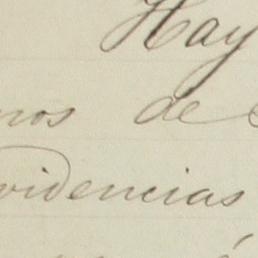 Hay
nos de
videncias